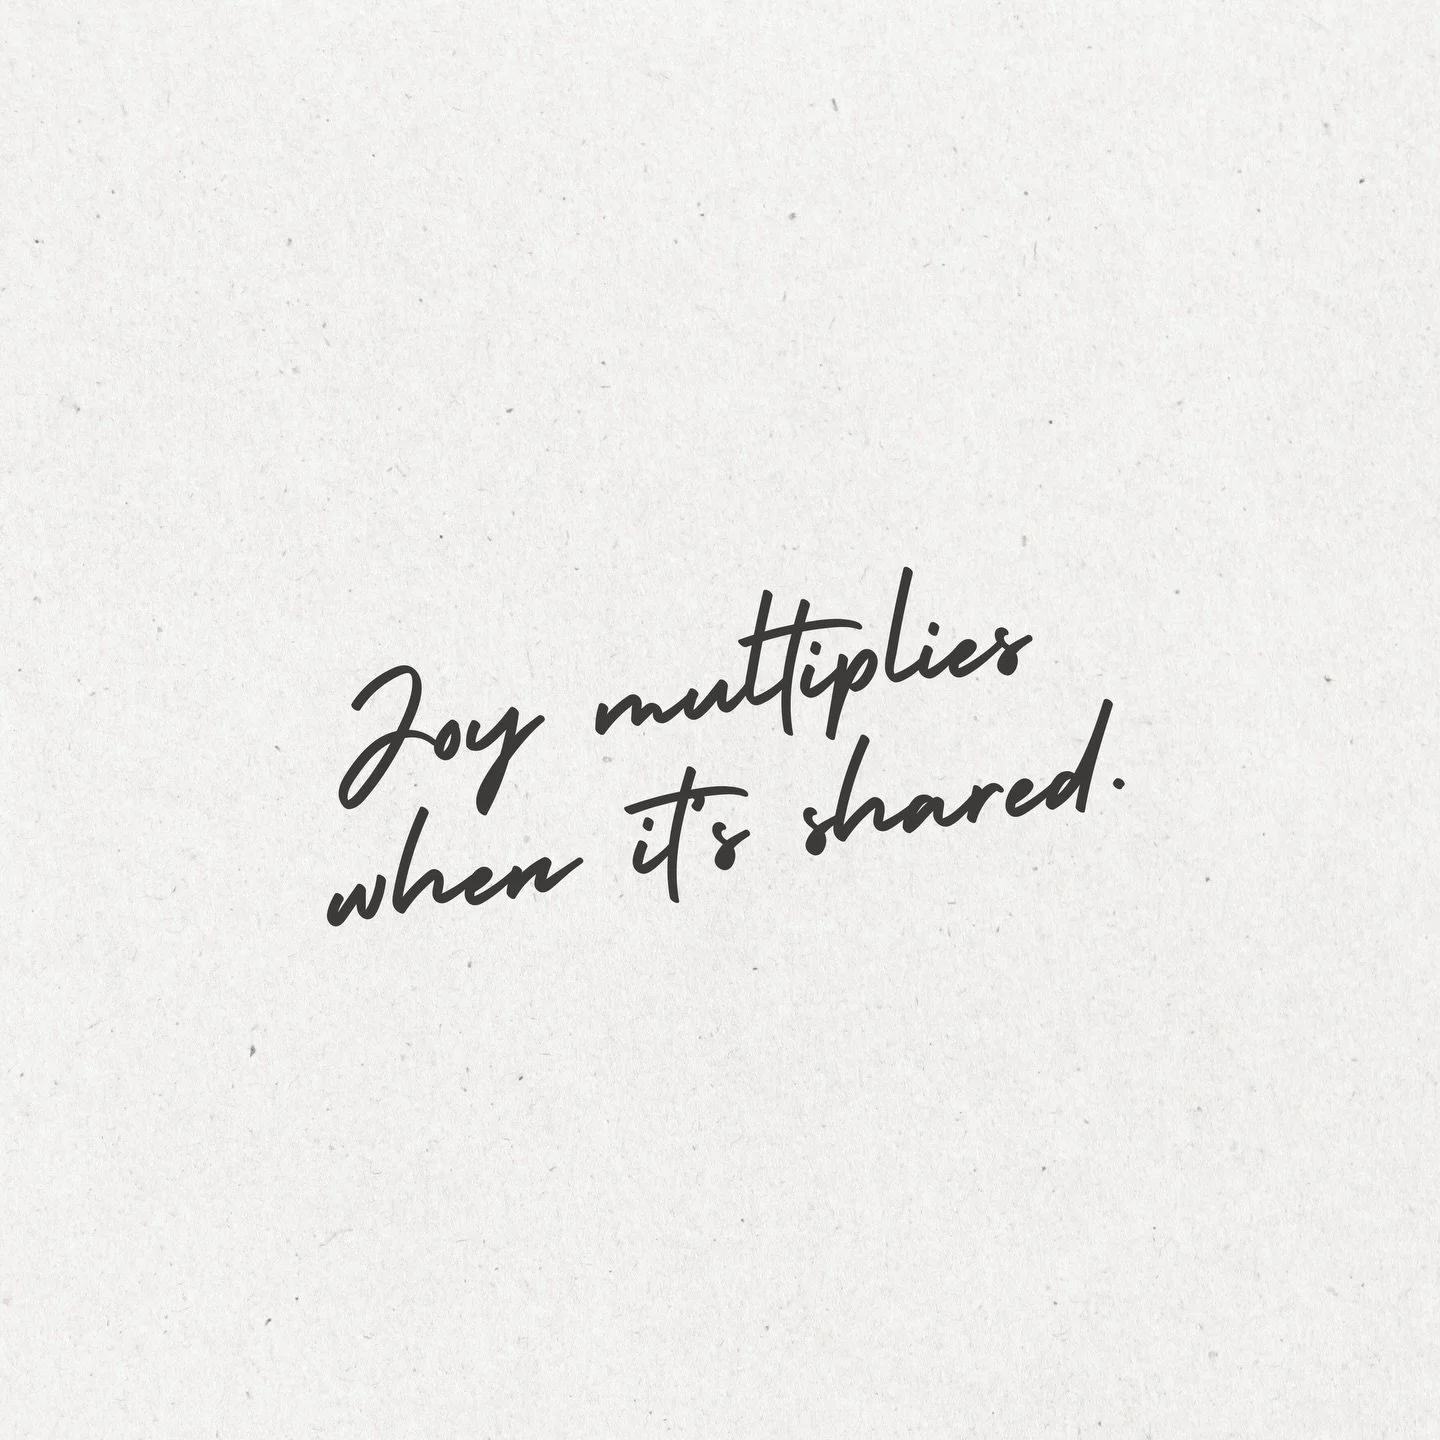 Joy multiplies
when it's shared.